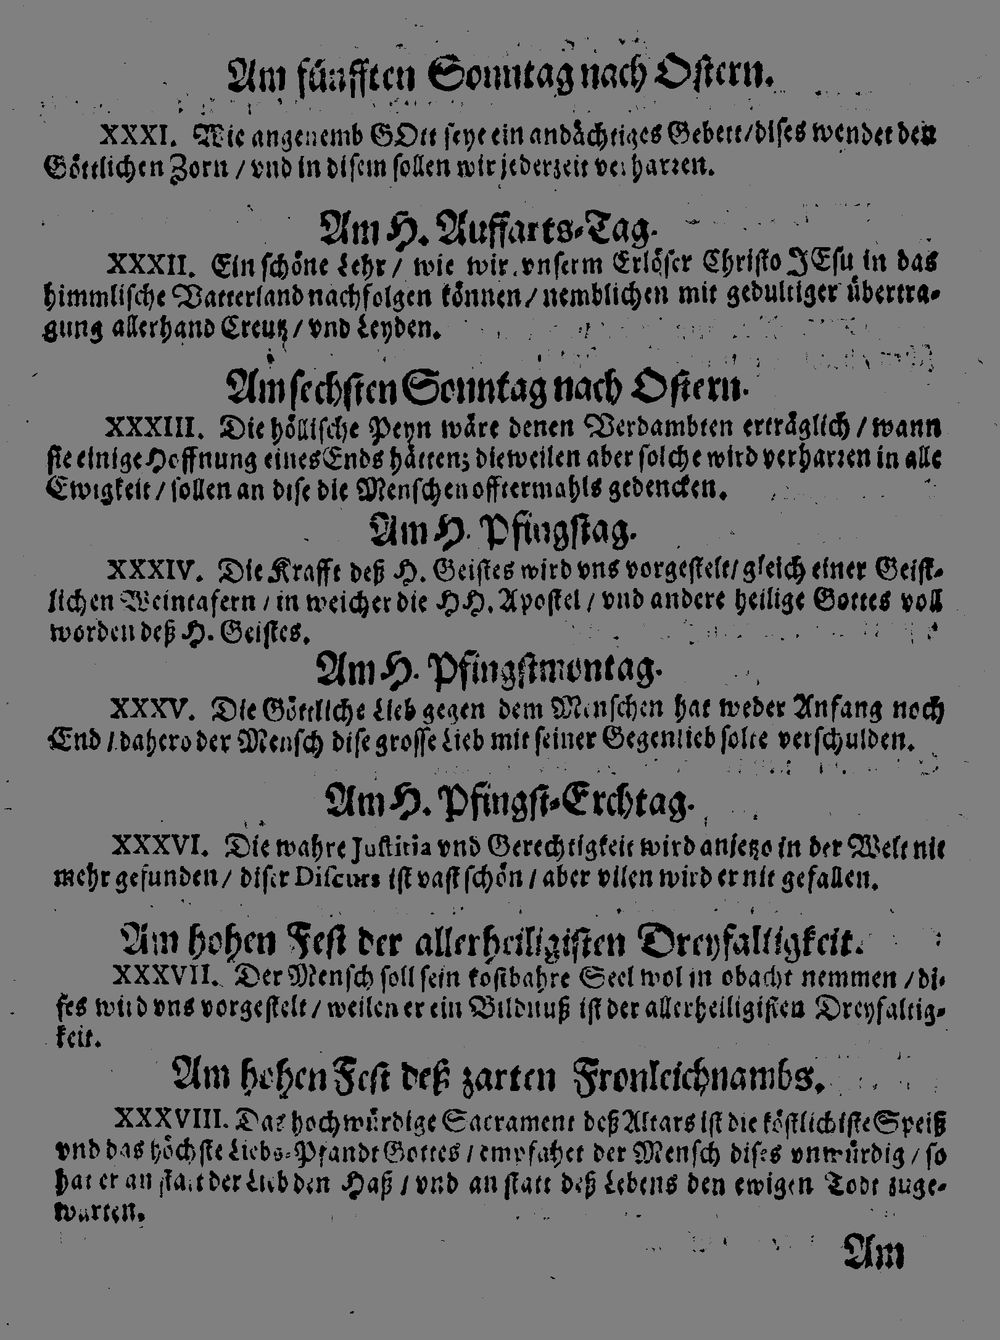 Am fünfften Sonntag nach Ostern.
XXXI. Wie angenemb GOtt seye ein andächtiges Gebett / dises wendet den
Göttlichen Zorn / vnd in disem sollen wir jederzeit verharren.
Am H. Auffarts-Tag.
XXXII. Ein schöne Lehr / wie wir vnserm Erlöser Christo JEsu in das
himmlische Vatterland nachfolgen können / nemblichen mit gedultiger übertra-
gung allerhand Creutz / vnd Leyden.
Am sechsten Sonntag nach Ostern.
XXXIII. Die höllische Peyn wäre denen Verdambten erträglich / wann
sie einige Hoffnung eines Ends hätten; dieweilen aber solche wird verharren in alle
Ewigkeit / sollen an dise die Menschen offtermahls gedencken.
Am H. Pfingstag.
XXXIV. Die Krafft deß H. Geistes wird vns vorgestelt / gleich einer Geist-
lichen Weintafern / in welcher die HH. Apostel / vnd andere heilige Gottes voll
worden deß H. Geistes.
Am H. Pfingstmontag.
XXXV. Die Göttliche Lieb gegen dem Menschen hat weder Anfang noch
End / dahero der Mensch dise grosse Lieb mit seiner Gegenlieb solte verschulden.
Am H. Pfingst-Erchtag.
XXXVI. Die wahre Justitia vnd Gerechtigkeit wird anjetzo in der Welt nit
mehr gefunden / diser Discurs ist vast schön / aber vilen wird er nit gefallen.
Am hohen Fest der allerheiligisten Dreyfaltigkeit.
XXXVII. Der Mensch soll sein kostbahre Seel wol in obacht nemmen / di-
ses wird vns vorgestelt / weilen er ein Bildnuß ist der allerheiligisten Dreyfaltig-
keit.
Am hohen Fest deß zarten Fronleichnambs.
XXXVIII. Das hochwürdige Sacrament deß Altars ist die köstlichiste Speiß
vnd das höchste Liebs-Pfandt Gottes / empfahet der Mensch dises vnwürdig / so
hat er an statt der Lieb den Haß / vnd an statt deß Lebens den ewigen Todt zuge-
warten.
Am